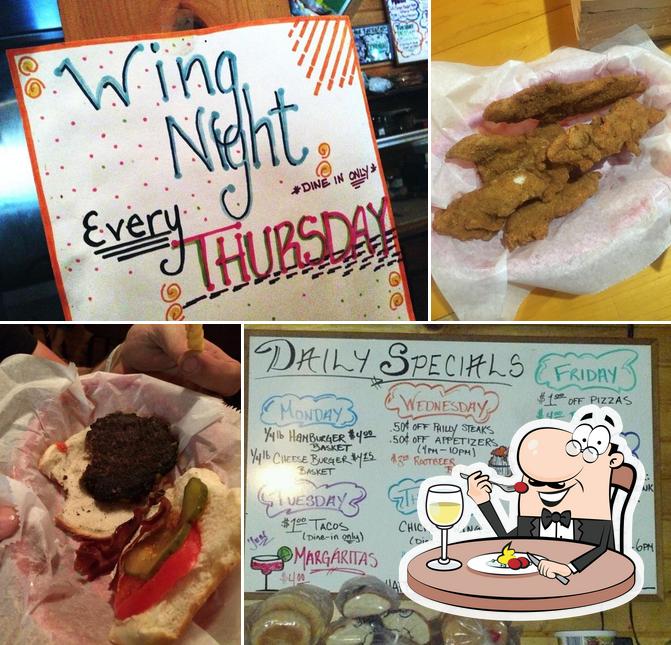 Wing
Night
*DINE IN ONLY*
Every
THURSDAY
DAILY SPECIALS
MONDAY
1/4 lb HAMBURGER $4.00
BASKET
1/4 lb CHEESE BURGER $4.25
BASKET
TUESDAY
$1.00 TACOS
(Dine-in only)
MARGARITAS
$4.00
WEDNESDAY
.50¢ OFF PHILLY STEAKS
.50¢ OFF APPETIZERS
(7PM - 10PM)
ROOTBEER
FRIDAY
$1.00 OFF PIZZAS